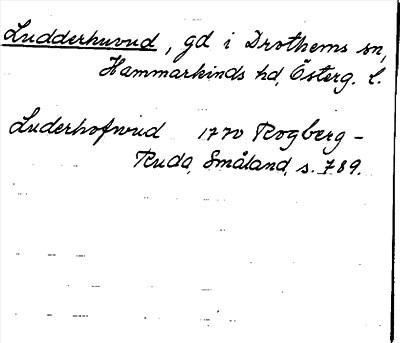 Ludderhuvud, gd i Drothems sn,
Hammarkinds hd, Österg. l.
Luderhofwud 1770 Rogberg-
Ruda, Småland, s. 789.